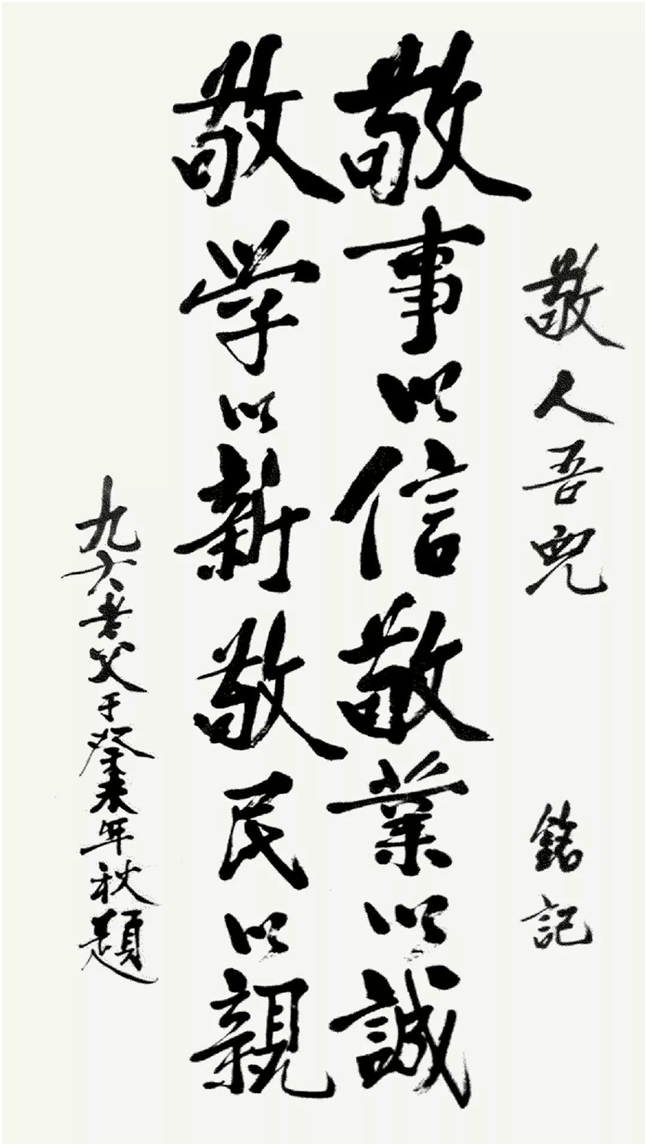 敬人吾兒 銘記
敬事以信敬業以誠
敬学以新敬民以親
九六老父于癸未年秋題